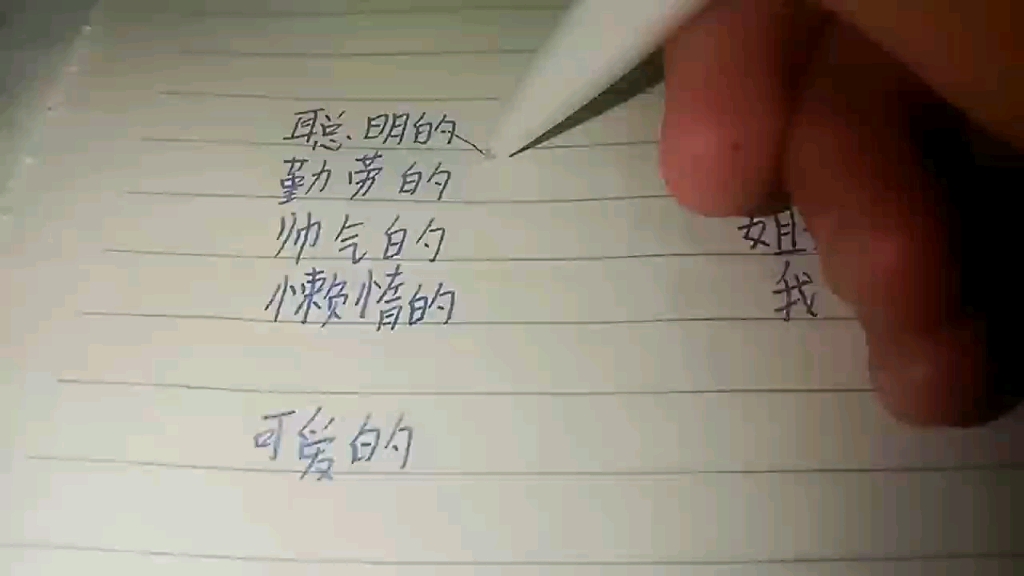 聪明的
勤劳的
帅气的 姐
懒惰的 我
可爱的